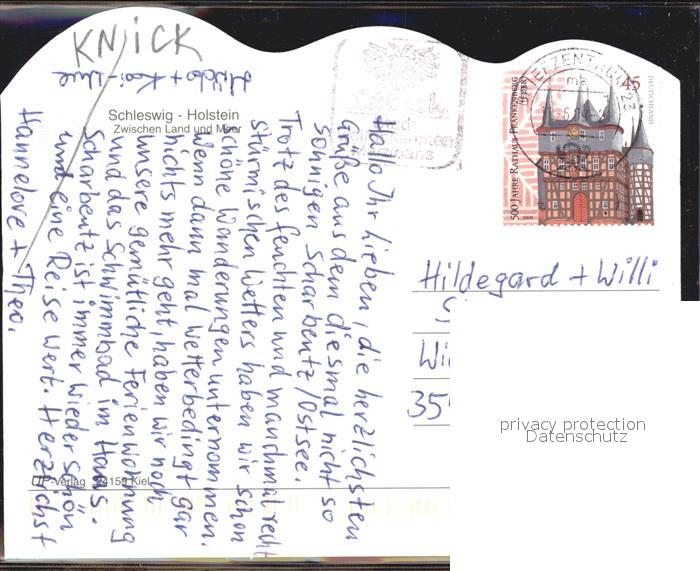 KNICK
Schleswig - Holstein
Zwischen Land und Meer
Hallo Ihr Lieben, die herzlichsten
Grüße aus dem diesmal nicht so
sonnigen Scharbeutz/Ostsee.
Trotz des feuchten und manchmal recht
stürmischen Wetters haben wir schon
schöne Wanderungen unternommen.
Wenn dann mal wetterbedingt gar
nichts mehr geht, haben wir noch
unsere gemütliche Ferienwohnung
und das Schwimmbad im Haus.
Scharbeutz ist immer wieder schön
und eine Reise wert. Herzlichst
Hannelore + Theo.
BRIEFZENTRUM 23
45
DEUTSCHLAND
500 JAHRE RATHAUS FRANKENBERG
(EDER)
Hildegard + Willi
Wi
35
privacy protection
Datenschutz
-Verlag 24159 Kiel